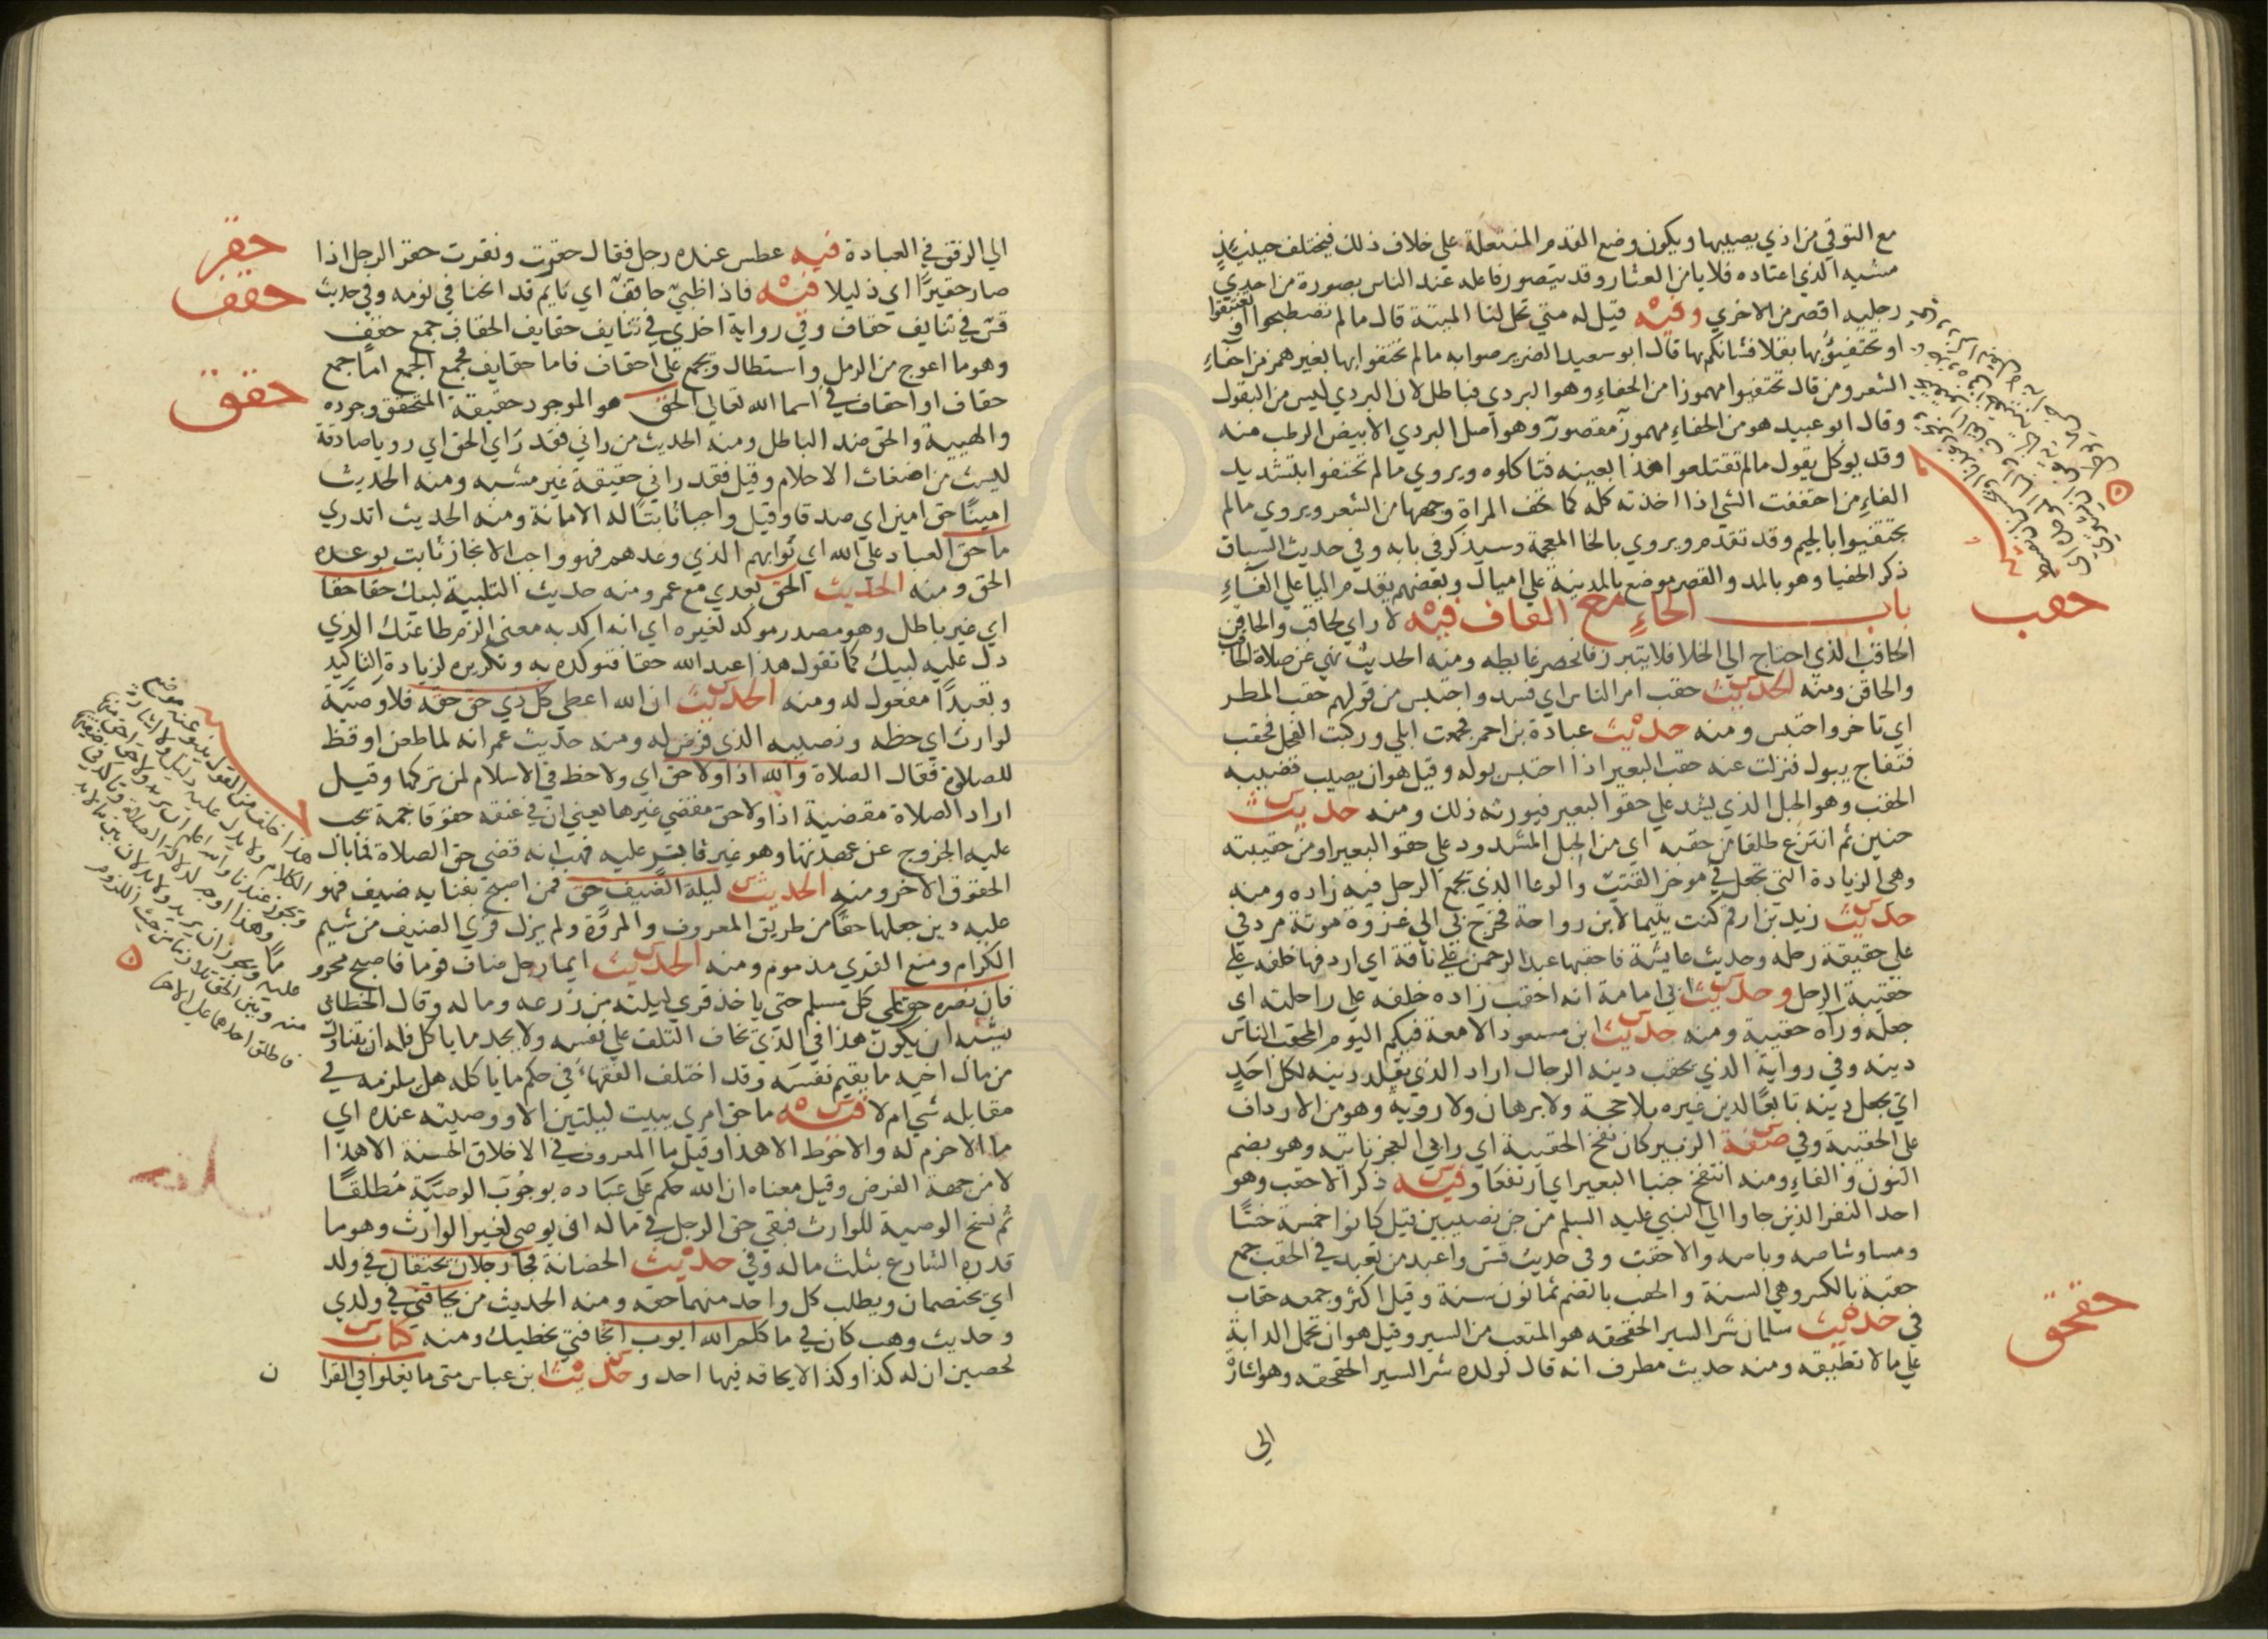 مع التوقي من اذي يصيبها ويكون وضع القدم المنتعلة علي خلاف ذلك فيختلف حينئذ
مشيه الذي اعتاده فلا يا من العثار وقد يتصور فاعله عند الناس بصورة من احدي
رجليه اقصر من الاخري وفيه قيل له متي تحل لنا الميتة قال ما لم تصطبحوا او تغتبقوا
او تحتفيؤا بها بقلا فشانكم بها قال ابو سعيد الضرير صوابه ما لم تحتفوا بها بغير همز من احفاء
الشعر ومن قال تحتفيوا مهموزا من الحفاء وهو البردي فباطل لان البردي ليس من البقول
وقال ابو عبيد هو من الحفاء مهموز مقصور وهو اصل البردي الابيض الرطب منه
وقد يوكل يقول ما لم تقتلعوا هذا بعينه فتاكلوه ويروي ما لم تحتفوا بتشديد
الفاء من احتففت الشي اذا اخذته كله كما تحف المراة وجهها من الشعر ويروي ما لم
تحتفيوا بالجيم وقد تقدم ويروي بالخا المعجمة وسيذكر في بابه وفي حديث السباق
ذكر الحفيا وهو بالمد والقصر موضع بالمدينة علي اميال وبعضهم يقدم اليا علي الفاء
باب الحاء مع القاف فيه لا راي لحاقب والحاقن
حقب
الحاقب الذي احتاج الي الخلا فلا يتبرز فانحصر غايطه ومنه الحديث نهي عن صلاة الحاقب
والحاقن ومنه الحديث حقب امر الناس اي فسد واحتبس من قولهم حقب المطر
اي تاخر واحتبس ومنه حديث عبادة بن احمر فجمعت ابلي وركبت الفحل فحقب
فتفاج يبول فنزلت عنه حقب البعير اذا احتبس بوله وقيل هو ان يصيب قضيبه
الحقب وهو الحبل الذي يشد علي حقو البعير فيورثه ذلك ومنه حديث
حنين ثم انتزع طلقا من حقبه اي من الحبل المشدود علي حقو البعير او من حقيبته
وهي الزيادة التي تجعل في موخر القتب والوعا الذي يجمع الرجل فيه زاده ومنه
حديث زيد بن ارقم كنت يتيما لابن رواحة فخرج بي الي غزوة موتة مردفي
علي حقيقة رحله وحديث عايشة فاحقبها عبد الرحمن علي ناقة اي اردفها خلفه علي
حقيبة الرحل وحديث ابي امامة انه احقب زاده خلفه علي راحلته اي
جعله وراه حقيبة ومنه حديث ابن مسعود الامعة فيكم اليوم المحقب الناس
دينه وفي رواية الذي يحقب دينه الرجال اراد الذي يقلد دينه لكل احد
اي يجعل دينه تابعا لدين غيره بلا حجة ولا برهان ولا روية وهو من الارداف
علي الحقيبة وفي صفة الزبير كان نفج الحقيبة اي رابي العجز ناتيه وهو بضم
النون والفاء ومنه انتفج جنبا البعير اي ارتفعا وفيه ذكر الاحقب وهو
احد النفر الذين جاوا الي النبي عليه السلم من جن نصيبين قيل كانوا خمسة خسا
ومسا وشاصه وباصه والاحقب وفي حديث قس واعبد من تعبد في الحقب جمع
حقبة بالكسر وهي السنة والحقب بالضم ثمانون سنة وقيل اكثر وجمعه حقاب
في حديث سلمان شر السير الحقحقه هو المتعب من السير وقيل هو ان تحمل الدابة
حقحق
علي ما لا تطيقه ومنه حديث مطرف انه قال لولده شر السير الحقحقه وهو اشارة
الي
الي الرفق في العبادة فيه عطس عنده رجل فقال حقرت ونقرت حقر الرجل اذا
حقر
صار حقيرا اي ذليلا فيه فاذا ظبي حاقف اي نايم قد انحنا في نومه وفي حديث
حقف
قس في تنايف حقاف وفي رواية اخري في تنايف حقايف الحقاف جمع حقف
وهو ما اعوج من الرمل واستطال ويجمع علي احقاف فاما حقايف فجمع الجمع اما جمع
حقاف او احقاف في اسما الله تعالي الحق هو الموجود حقيقة المتحقق وجوده
حقق
والهيية والحق ضد الباطل ومنه الحديث من راني فقد راي الحق اي رويا صادقة
ليست من اضغاث الاحلام وقيل فقد راني حقيقة غير مشبه ومنه الحديث
امينا حق امين اي صدقا وقيل واجبا ثابتا له الامانة ومنه الحديث اتدري
ما حق العباد علي الله اي ثوابهم الذي وعدهم فهو واجب الانجاز ثابت بوعده
الحق ومنه الحديث الحق بعدي مع عمر ومنه حديث التلبية لبيك حقا حقا
اي غير باطل وهو مصدر موكد لغيره اي انه اكد به معني الزم طاعتك الذي
دل عليه لبيك كما تقول هذا عبد الله حقا فتوكده به وتكريره لزيادة التاكيد
وتعبدا مفعول له ومنه الحديث ان الله اعطي كل ذي حق حقه فلا وصية
لوارث اي حظه ونصيبه الذي فرض له ومنه حديث عمر انه لما طعن اوقظ
للصلاة فقال الصلاة والله اذا ولا حق اي ولا حظ في الاسلام لمن تركها وقيل
اراد الصلاة مقضية اذا ولا حق مقضي غيرها يعني ان في عنقه حقوقا جمة يجب
عليه الخروج عن عهدتها وهو غير قادر عليه فهب انه قضي حق الصلاة فما بال
الحقوق الاخر ومنه الحديث ليلة الضيف حق فمن اصبح بفنايه ضيف فهو
عليه دين جعلها حقا من طريق المعروف والمروة ولم يزل قري الضيف من شيم
الكرام ومنع القري مذموم ومنه الحديث ايما رجل ضاف قوما فاصبح محروم
فان نصره حق علي كل مسلم حتي ياخذ قري ليلته من زرعه وماله وقال الخطابي
يشبه ان يكون هذا في الذي يخاف التلف علي نفسه ولا يجد ما ياكل فله ان يتناول
من مال اخيه ما يقيم نفسه وقد اختلف الفقهاء في حكم ما ياكله هل يلزمه في
مقابله شي ام لا فيه ما حق امري يبيت ليلتين الا ووصيته عنده اي
ما الاحزم له والاحوط الا هذا وقيل ما المعروف في الاخلاق الحسنة الا هذا
لا من جهة الفرض وقيل معناه ان الله حكم علي عباده بوجوب الوصية مطلقا
ثم نسخ الوصية للوارث فبقي حق الرجل في ماله ان يوصي لغير الوارث وهو ما
قدره الشارع بثلث ماله وفي حديث الحضانة فجا رجلان يحتقان في ولد
اي يختصمان ويطلب كل واحد منهما حقه ومنه الحديث من يحاقني في ولدي
وحديث وهب كان في ما كلم الله ايوب اتحاقني بخطيك ومنه كتاب
لحصين ان له كذا وكذا لا يحاقه فيها احد وحديث ابن عباس متي ما يغلوا في القرا